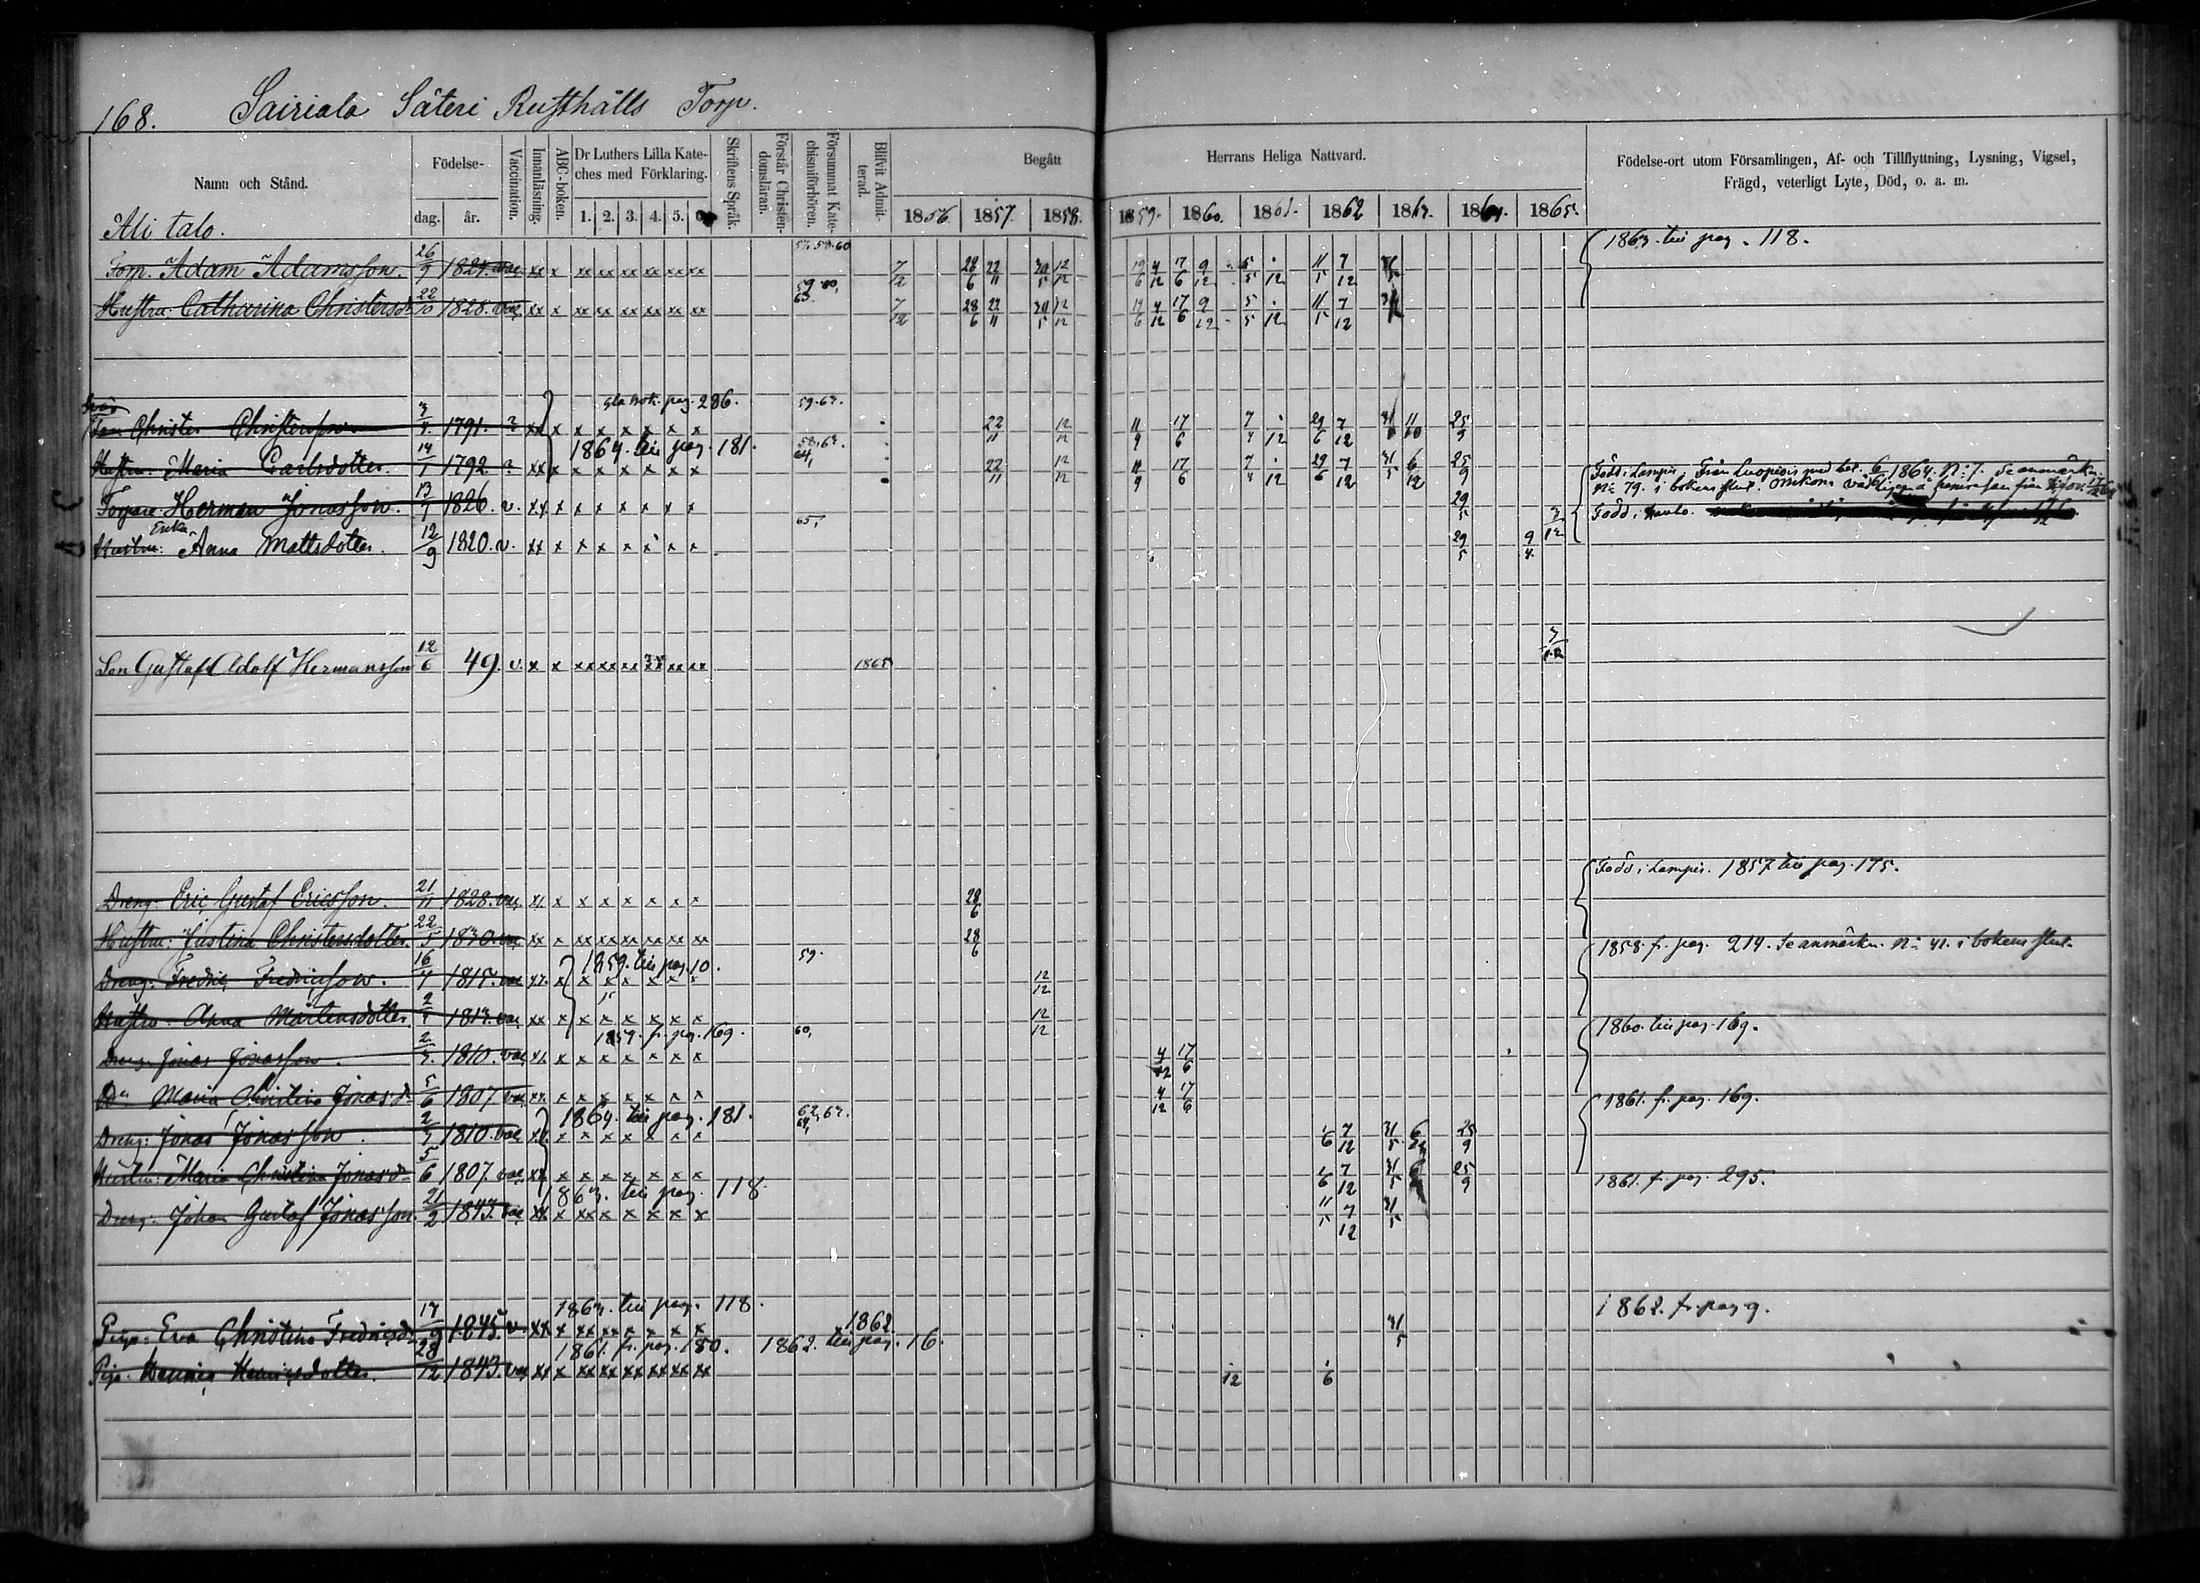 168. Sairiala Säteri Rusthålls Torp.
Namn och Stånd. Födelse- dag. år. Vaccination. Innanläsning. ABC-boken. Dr Luthers Lilla Kateches med Förklaring. 1. 2. 3. 4. 5. Skriftens Språk. Förstår Christendomsläran. Försummat Katechismiförhören. Blifvit Admitterad. Begått Herrans Heliga Nattvard. Födelse-ort utom Församlingen, Af- och Tillflyttning, Lysning, Vigsel, Frägd, veterligt Lyte, Död, o. a. m.
1856. 1857. 1858. 1859. 1860. 1861. 1862 1863. 1864. 1865.
Ali talo.
1863. till pag. 118.
Torp. Adam Adamsson. 26/9 1824. vac. xx x xx xx xx xx xx xx 7/12 28/6 22/11 30/5 12/12 19/6 4/12 17/6 9/12 5/5 /12 11/5 7/12
Hustru: Catharina Christersdr 22/10 1828. vac. xx x xx xx xx xx xx xx 7/12 28/6 22/11 30/5 12/12 19/6 4/12 17/6 9/12 5/5 /12 11/5 7/12
pag. 286. 59.63.
Christer Christersson 3/4. 1791. ? xx x x x x x x x 22/11 12/12 11/9 17/6 7/4 /12 29/6 7/12 31/5 11/10 25/9
1864. till pag. 181.
Hustru: Maria Carlsdotter. 14/1 1792 ? xx x x x x x x x 22/11 12/12 11/9 17/6 7/4 /12 29/6 7/12 31/5 6/12 25/9
Född i Lampis. Från Luopiois med bet. 6/6 1864. N:o 1. Se anmärkn.
N:o 79. i bokens slut.
Torpare Herman Jonasson. 13/7 1826. v. xx x x x x x x x 29/5
Född i
Enka
Hustru: Anna Mattsdotter. 12/9 1820. v. xx x x x x x x x 65, 29/5 9/4. 3/12
Son Gustaf Adolf Hermansson 12/6 49. v. x x xx xx xx xx xx 1865 3/12
Född i Lampis. 1857 till pag. 175.
Dreng: Eric Gustaf Ericsson. 21/11 1828. vac. xx x x x x x x x 28/6
Hustru: Justina Christersdotter. 22/5 1830. vac xx x xx xx xx xx xx xx 28/6
1858. fr. pag. 214. Se anmärkn. N:o 41. i bokens slut.
1859. till pag. 10. 59.
Dreng: Fredric Fredricsson. 16/4 1815. vac xx. x x x x x x x 12/12
Hustru: Anna Mårtensdotter. 2/1 1813. vac. xx x x x x x x x 12/12
1859. fr. pag. 169. 60,
1860. till pag. 169.
Dreng: Jonas Jonasson. 2/3. 1810. vac xx. x x x x x x x 4/12 17/6
Do Maria Christina Jonasd:r 5/6 1807. vac xx. x x x x x x x 4/12 17/6
1864. till pag. 181.
1861. fr. pag. 169.
Dreng: Jonas Jonasson. 2/3 1810. vac xx x x x x x x x 1/6 7/12 31/5 6/12 25/9
Hustru: Maria Christina Jonasd:r 5/6 1807. vac xx x x x x x x x 1/6 7/12 31/5 25/9
1863. till pag. 118.
1861. fr. pag. 295.
Dreng: Johan Gustaf Jonasson. 21/2 1843. vac xx x xx x x x x x 11/5 7/12 31/5
1863. till pag. 118.
1862. fr. pag 9.
Piga: Eva Christina Fredricsdr 17/9 1845. v. xx x xx xx x x x x 1862 31/5
1861. fr. pag. 180. 1862. till pag. 16.
Piga: Henrica Henricsdotter. 28/12 1843. vac xx x xx xx xx xx xx xx /12 1/6